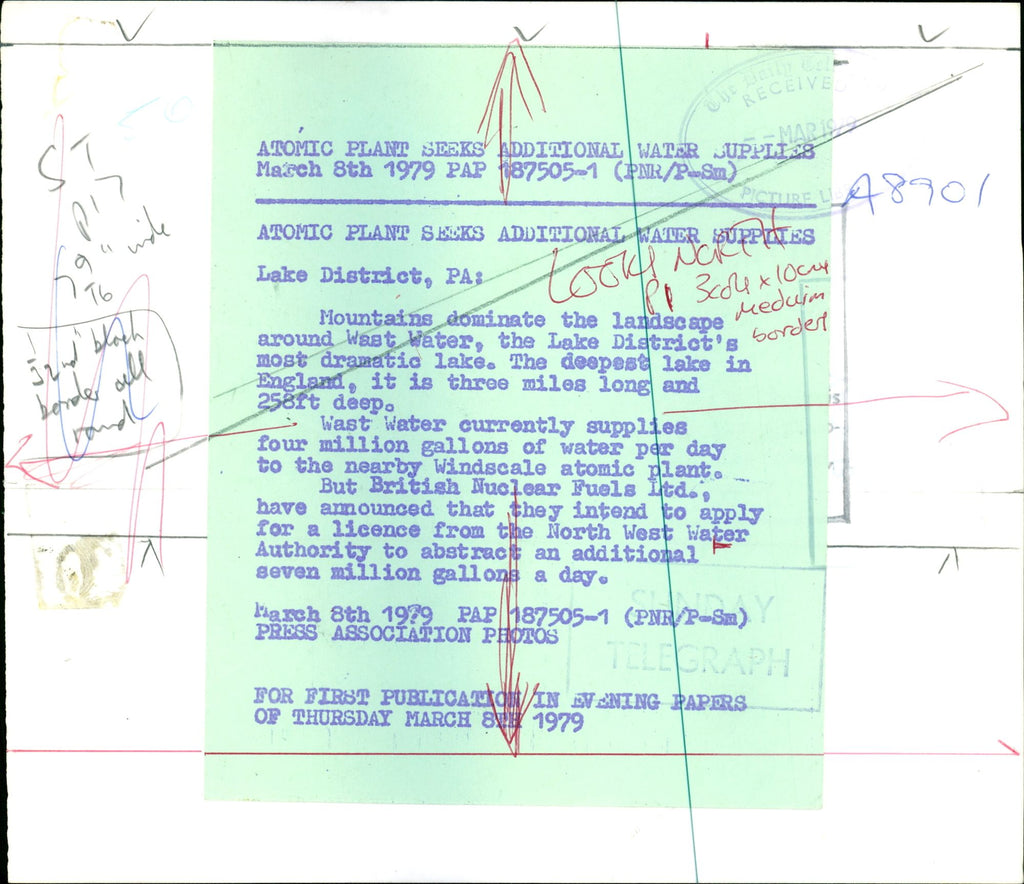 The Daily
RECEIVED
MAR 19
PICTURE
A8901
ST
P17
79" wide
T6
black
border all
round
ATOMIC PLANT SEEKS ADDITIONAL WATER SUPPLIES
March 8th 1979 PAP 187505-1 (PNR/P-Sm)
ATOMIC PLANT SEEKS ADDITIONAL WATER SUPPLIES
LOOK NORTH
P1 3cols x 10cm
border
Lake District, PA:
Mountains dominate the landscape
around Wast Water, the Lake District's
most dramatic lake. The deepest lake in
England, it is three miles long and
258ft deep.
Wast Water currently supplies
four million gallons of water per day
to the nearby Windscale atomic plant.
But British Nuclear Fuels Ltd.,
have announced that they intend to apply
for a licence from the North West Water
Authority to abstract an additional
seven million gallons a day.
March 8th 1979 PAP 187505-1 (PNR/P-Sm)
PRESS ASSOCIATION PHOTOS
SUNDAY
TELEGRAPH
FOR FIRST PUBLICATION IN EVENING PAPERS
OF THURSDAY MARCH 8TH 1979